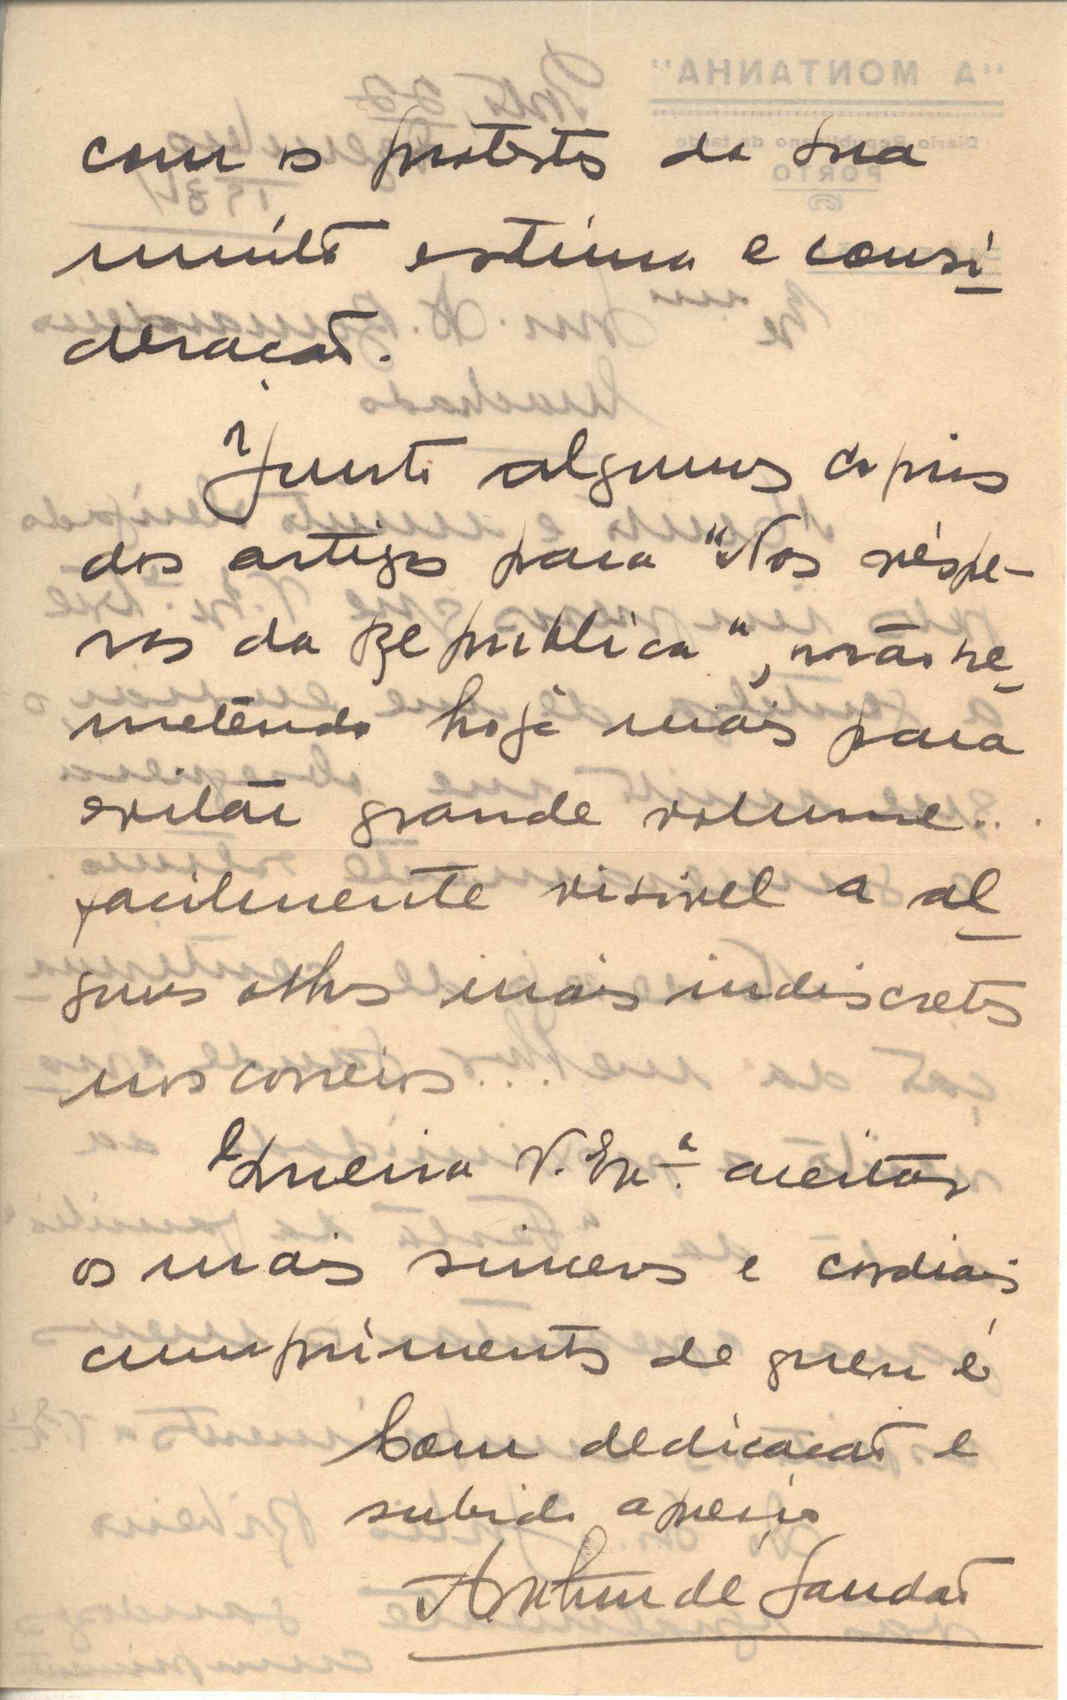 com os protestos da sua
muita estima e consi
deração.
Junto algumas copias
dos artigos para "Nas véspe-
ras da Republica", não re
metendo hoje mais para
evitar grande volume...
facilmente visivel a al
guns olhos mais indiscretos
nos correios...
Queira V. Ex.ª aceitar
os mais sinceros e cordiais
cumprimentos de quem é
com dedicação e
subido apreço
Arthur de Sandão